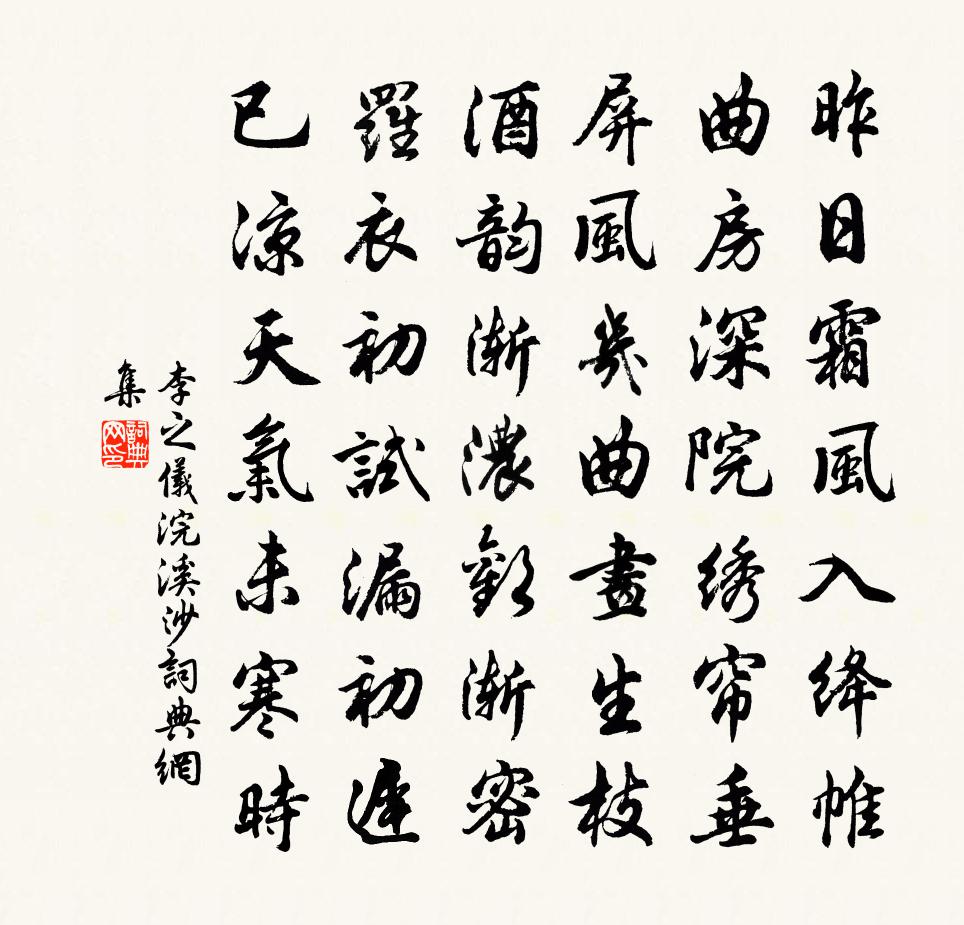 昨日霜風入絳帷
曲房深院綉帘垂
屏風幾曲畫生枝
酒韵漸濃歡漸密
羅衣初試漏初遲
已涼天氣未寒時
李之儀浣溪沙詞典網
集
詞典網印